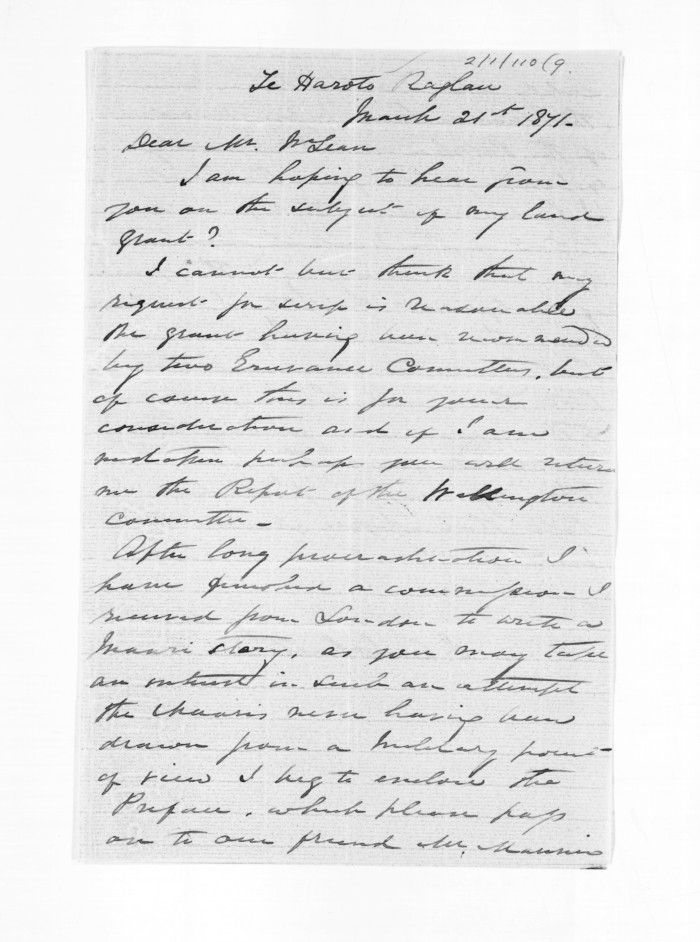 2/1/110/9.
Te Haroto Raglan
March 21st 1871.
Dear Mr. McLean
I am hoping to hear from
you on the subject of my land
grant?
I cannot but think that my
request for scrip is reasonable
the grant having been recommended
by two Committees, but
of course this is for your
consideration and if I am
mistaken perhaps you will return
me the Report of the Wellington
Committee -
After long procrastination I
have finished a commission I
received from London to write a
Maori story, as you may take
an interest in such an attempt
the Maoris never having been
drawn from a Military point
of view I beg to enclose the
Preface, which please pass
on to our friend Mr.